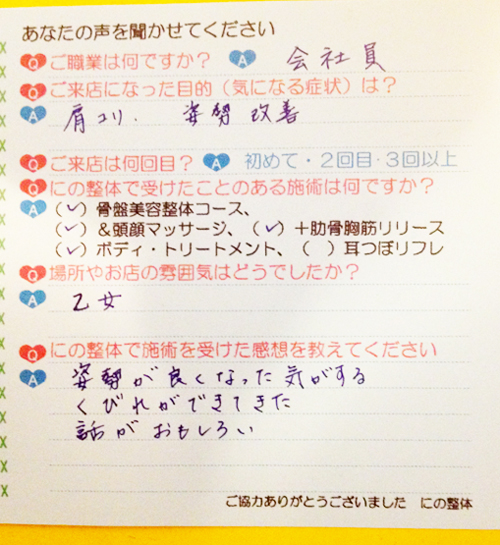 あなたの声を聞かせてください
Q ご職業は何ですか? A 会社員
Q ご来店になった目的(気になる症状)は?
A 肩コリ、 姿勢改善
Q ご来店は何回目? A 初めて・2回目・3回以上
Q にの整体で受けたことのある施術は何ですか?
A (✓)骨盤美容整体コース、
(✓)&頭顔マッサージ、(✓)+肋骨胸筋リリース
(✓)ボディ・トリートメント、( )耳つぼリフレ
Q 場所やお店の雰囲気はどうでしたか?
A 乙女
Q にの整体で施術を受けた感想を教えてください
A 姿勢が良くなった気がする
くびれができてきた
話がおもしろい
ご協力ありがとうございました にの整体